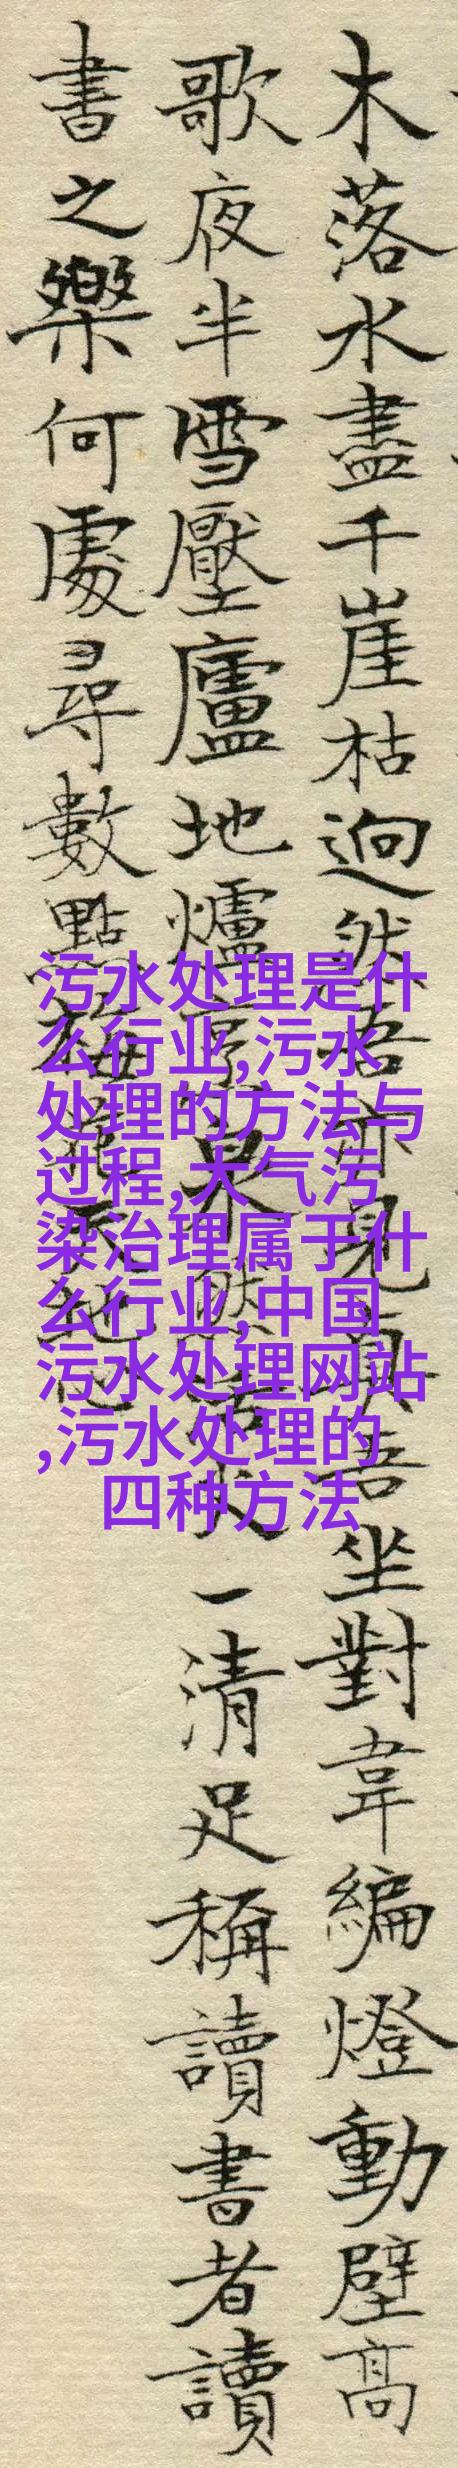 木落水盡千崖枯迥然吾亦見真吾坐對韋編燈動壁高
歌夜半雪壓廬地爐烹泉然活火一清足稱讀書者讀
書之樂何處尋數點梅花天地心
污水处理是什
么行业,污水
处理的方法与
过程,大气污
染治理属于什
么行业,中国
污水处理网站
,污水处理的
四种方法